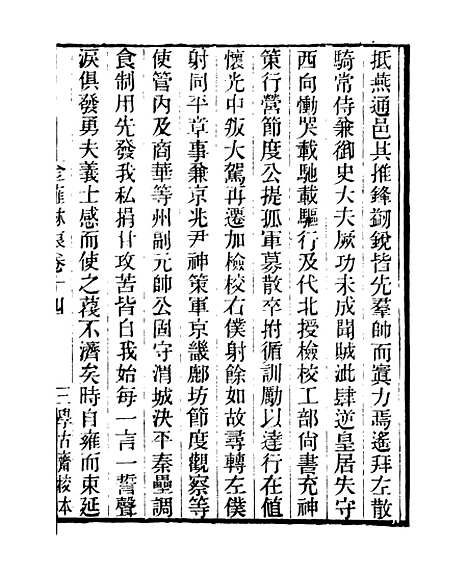 抵燕通邑其推鋒衂銳皆先羣帥而實力焉遙拜左散
騎常侍兼御史大夫厥功未成聞賊泚肆逆皇居失守
西向慟哭載馳載驅行及代北授檢校工部尚書充神
策行營節度公提孤軍募散卒拊循訓勵以達行在値
懷光中叛大駕再遷加檢校右僕射餘如故尋轉左僕
射同平章事兼京兆尹神策軍京畿鄜坊節度觀察等
使管內及商華等州副元帥公固守渭城決平秦壘調
食制用先發我私捐甘攻苦皆自我始每一言一誓聲
淚俱發勇夫義士感而使之蔑不濟矣時自雍而東延
卷十四
三
學古齋校本